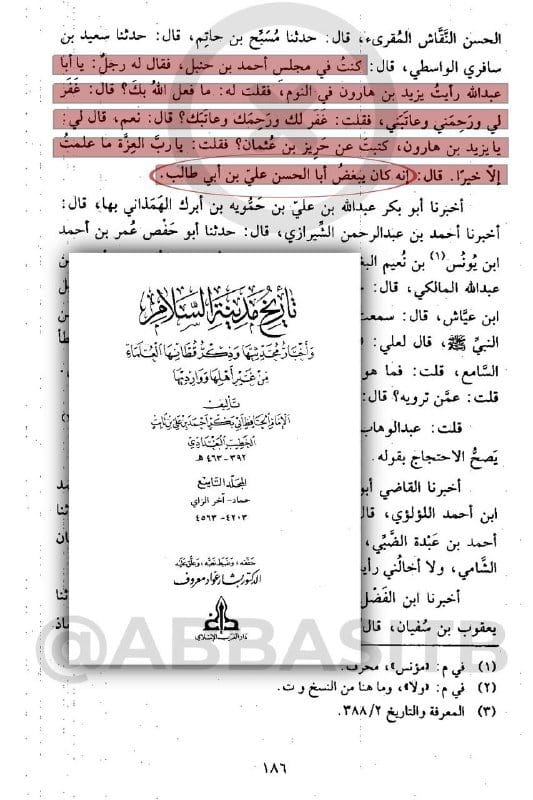 الحسن النَّقَّاش المُقرىء، قال: حدثنا مُسَبِّح بن حاتِم، قال: حدثنا سعيد بن
سافري الواسطي، قال: كنتُ في مجلس أحمد بن حنبل، فقال له رجلٌ: يا أبا
عبدالله رأيتُ يزيد بن هارون في النوم، فقلت له: ما فعل اللهُ بكَ؟ قال: غَفَر
لي ورَحِمَني وعاتَبَني، فقلت: غَفَر لك ورَحِمَك وعاتَبَك؟ قال: نعم، قال لي:
يا يزيد بن هارون، كتبتَ عن حَرِيز بن عُثمان؟ فقلت: يا ربَّ العِزَّة ما علمتُ
إلّا خيرًا. قال: إنه كان يبغضُ أبا الحسن عليّ بن أبي طالب.
أخبرنا أبو بكر عبدالله بن عليّ بن حَمُّويه بن أبرك الهَمَذاني بها، قال:
أخبرنا أحمد بن عبدالرحمن الشِّيرازي، قال: حدثنا أبو حَفْص عُمر بن أحمد
ابن يُونُس (١) بن نُعيم
عبدالله المالكي، قال:
ابن عيَّاش، قال: سمعت
النبيِّ ﷺ، قال لعلي:
السامع، قلت: فما هو
قلت: عمَّن ترويه؟ قال
قلت: عبدالوهاب
يَصحُّ الاحتجاج بقوله.
أخبرنا القاضي أبو
ابن أحمد اللؤلؤي، قال
أحمد بن عَبْدة الضَّبِّي،
الشَّامي، ولا أخالُني
أخبرنا ابن الفَضْل
يعقوب بن سُفيان، قال
تاريخ مدينة السلام
وأخبار محدثيها وذكر قطانها العلماء
من غير أهلها ووارديها
تأليف
الإمام الحافظ أبي بكر أحمد بن علي بن ثابت
الخطيب البغدادي
٣٩٢-٤٦٣ هـ
المجلد التاسع
حماد - آخر الزاي
٤٢٠٣-٤٥٦٣
حققه، وضبط نصه، وعلق عليه
الدكتور بشار عواد معروف
دار الغرب الإسلامي
@ABBASITB
(١) في م: «مؤنس»، محرف.
(٢) في م: «ولا»، وما هنا من النسخ و ت.
(٣) المعرفة والتاريخ ٣٨٨/٢.
١٨٦